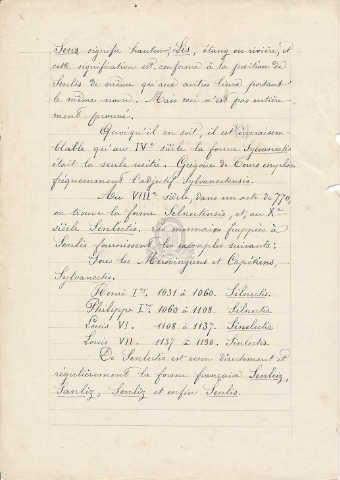 Sens signifie hauteur, Lis, étang ou rivière, et
cette signification est conforme à la position de
Senlis de même qu'aux autres lieux portant
le même nom. Mais ceci n'est pas entière-
ment prouvé.
Quoiqu'il en soit, il est vraisem
blable qu'au IVe siècle la forme Sylvanectis
était la seule usitée. Grégoire de Tours emploie
fréquemment l'adjectif Sylvanectensis.
Au VIIIe siècle, dans un acte de 770,
on trouve la forme Selnectensis, et, au Xe
siècle Senlectis. Les monnaies frappées à
Senlis fournissent les exemples suivants:
Sous les Mérovingiens et Capétiens,
Sylvanectis.
Henri Ier. 1031 à 1060. Silnectis.
Philippe Ier. 1060 à 1108. Silnectis
Louis VI. 1108 à 1137. Sinelectis
Louis VII. 1137 à 1180. Sinlectis.
De Senlectis est venu directement et
régulièrement la forme française Senleiz,
Sanliz, Senliz et enfin Senlis.